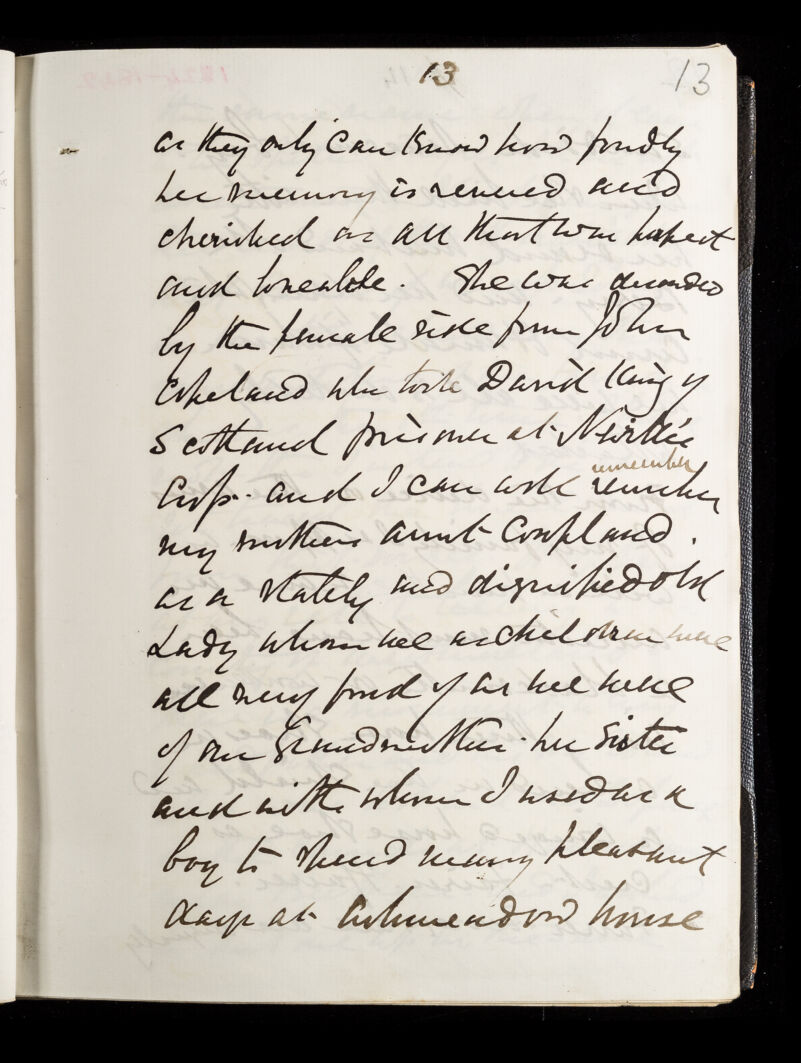 13
13
as they only can know how fondly
her memory is revered and
cherished as all that was perfect
and loveable. She was
by the female side from John
Copeland who took David King of
Scotland prisoner at Nevilles
Cross. and I can well remember
remember
my mothers aunt Coupland.
as a stately and dignified old
Lady whom we as children were
all very fond of as we were
of our Grandmother. her Sister
and with whom I used as a
boy to spend many pleasant
days at Ashmeadow house